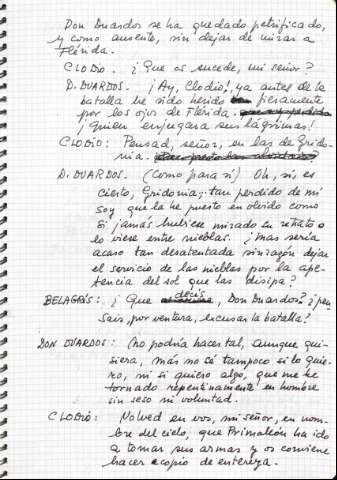 Don Duardos se ha quedado petrificado,
y como ausente, sin dejar de mirar a
Flérida.
CLODIO. ¿Que os sucede, mi señor?
D. DUARDOS. ¡Ay, Clodio! ya antes de la
batalla he sido herido fieramente
por los ojos de Flérida.
¡Quien enjugara sus lágrimas!
CLODIO: Pensad, señor, en las de Grido-
nia.
D. DUARDOS. (Como para sí) Oh, sí, es
cierto, Gridonia; tan perdido de mí
soy que la he puesto en olvido como
si jamás hubiera mirado su retrato o
lo viese entre nieblas. ¿Mas sería
acaso tan desatentada sinrazón dejar
el servicio de las nieblas por la ape-
tencia del sol que las disipa?
BELAGRIS: ¿Que decís, Don Duardos? ¿pen
sais, por ventura, excusar la batalla?
DON DUARDOS: No podría hacer tal, aunque qui-
siera, mas no sé tampoco si lo quie-
ro, ni si quiero algo, que me he
tornado repentinamente en hombre
sin seso ni voluntad.
CLODIO: Volved en vos, mi señor, en nom-
bre del cielo, que Primaleón ha ido
a tomar sus armas y os conviene
hacer acopio de entereza.